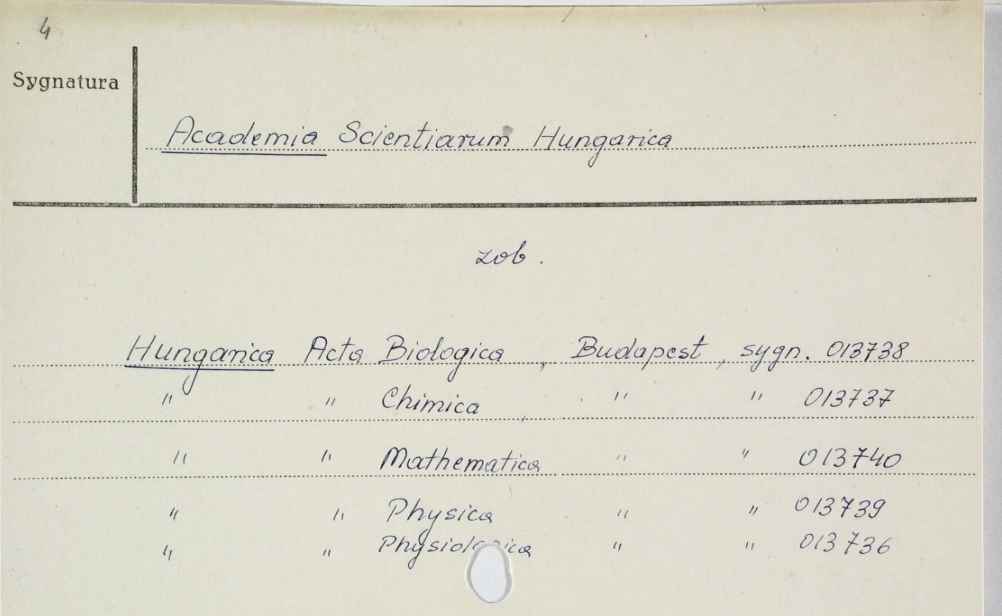 4
Sygnatura
Academia Scientiarum Hungarica
zob.
Hungarica Acta Biologica, Budapest, sygn. 013738
" " Chimica, " " 013737
" " Mathematica " " 013740
" " Physica " " 013739
" " Physiologica " " 013736